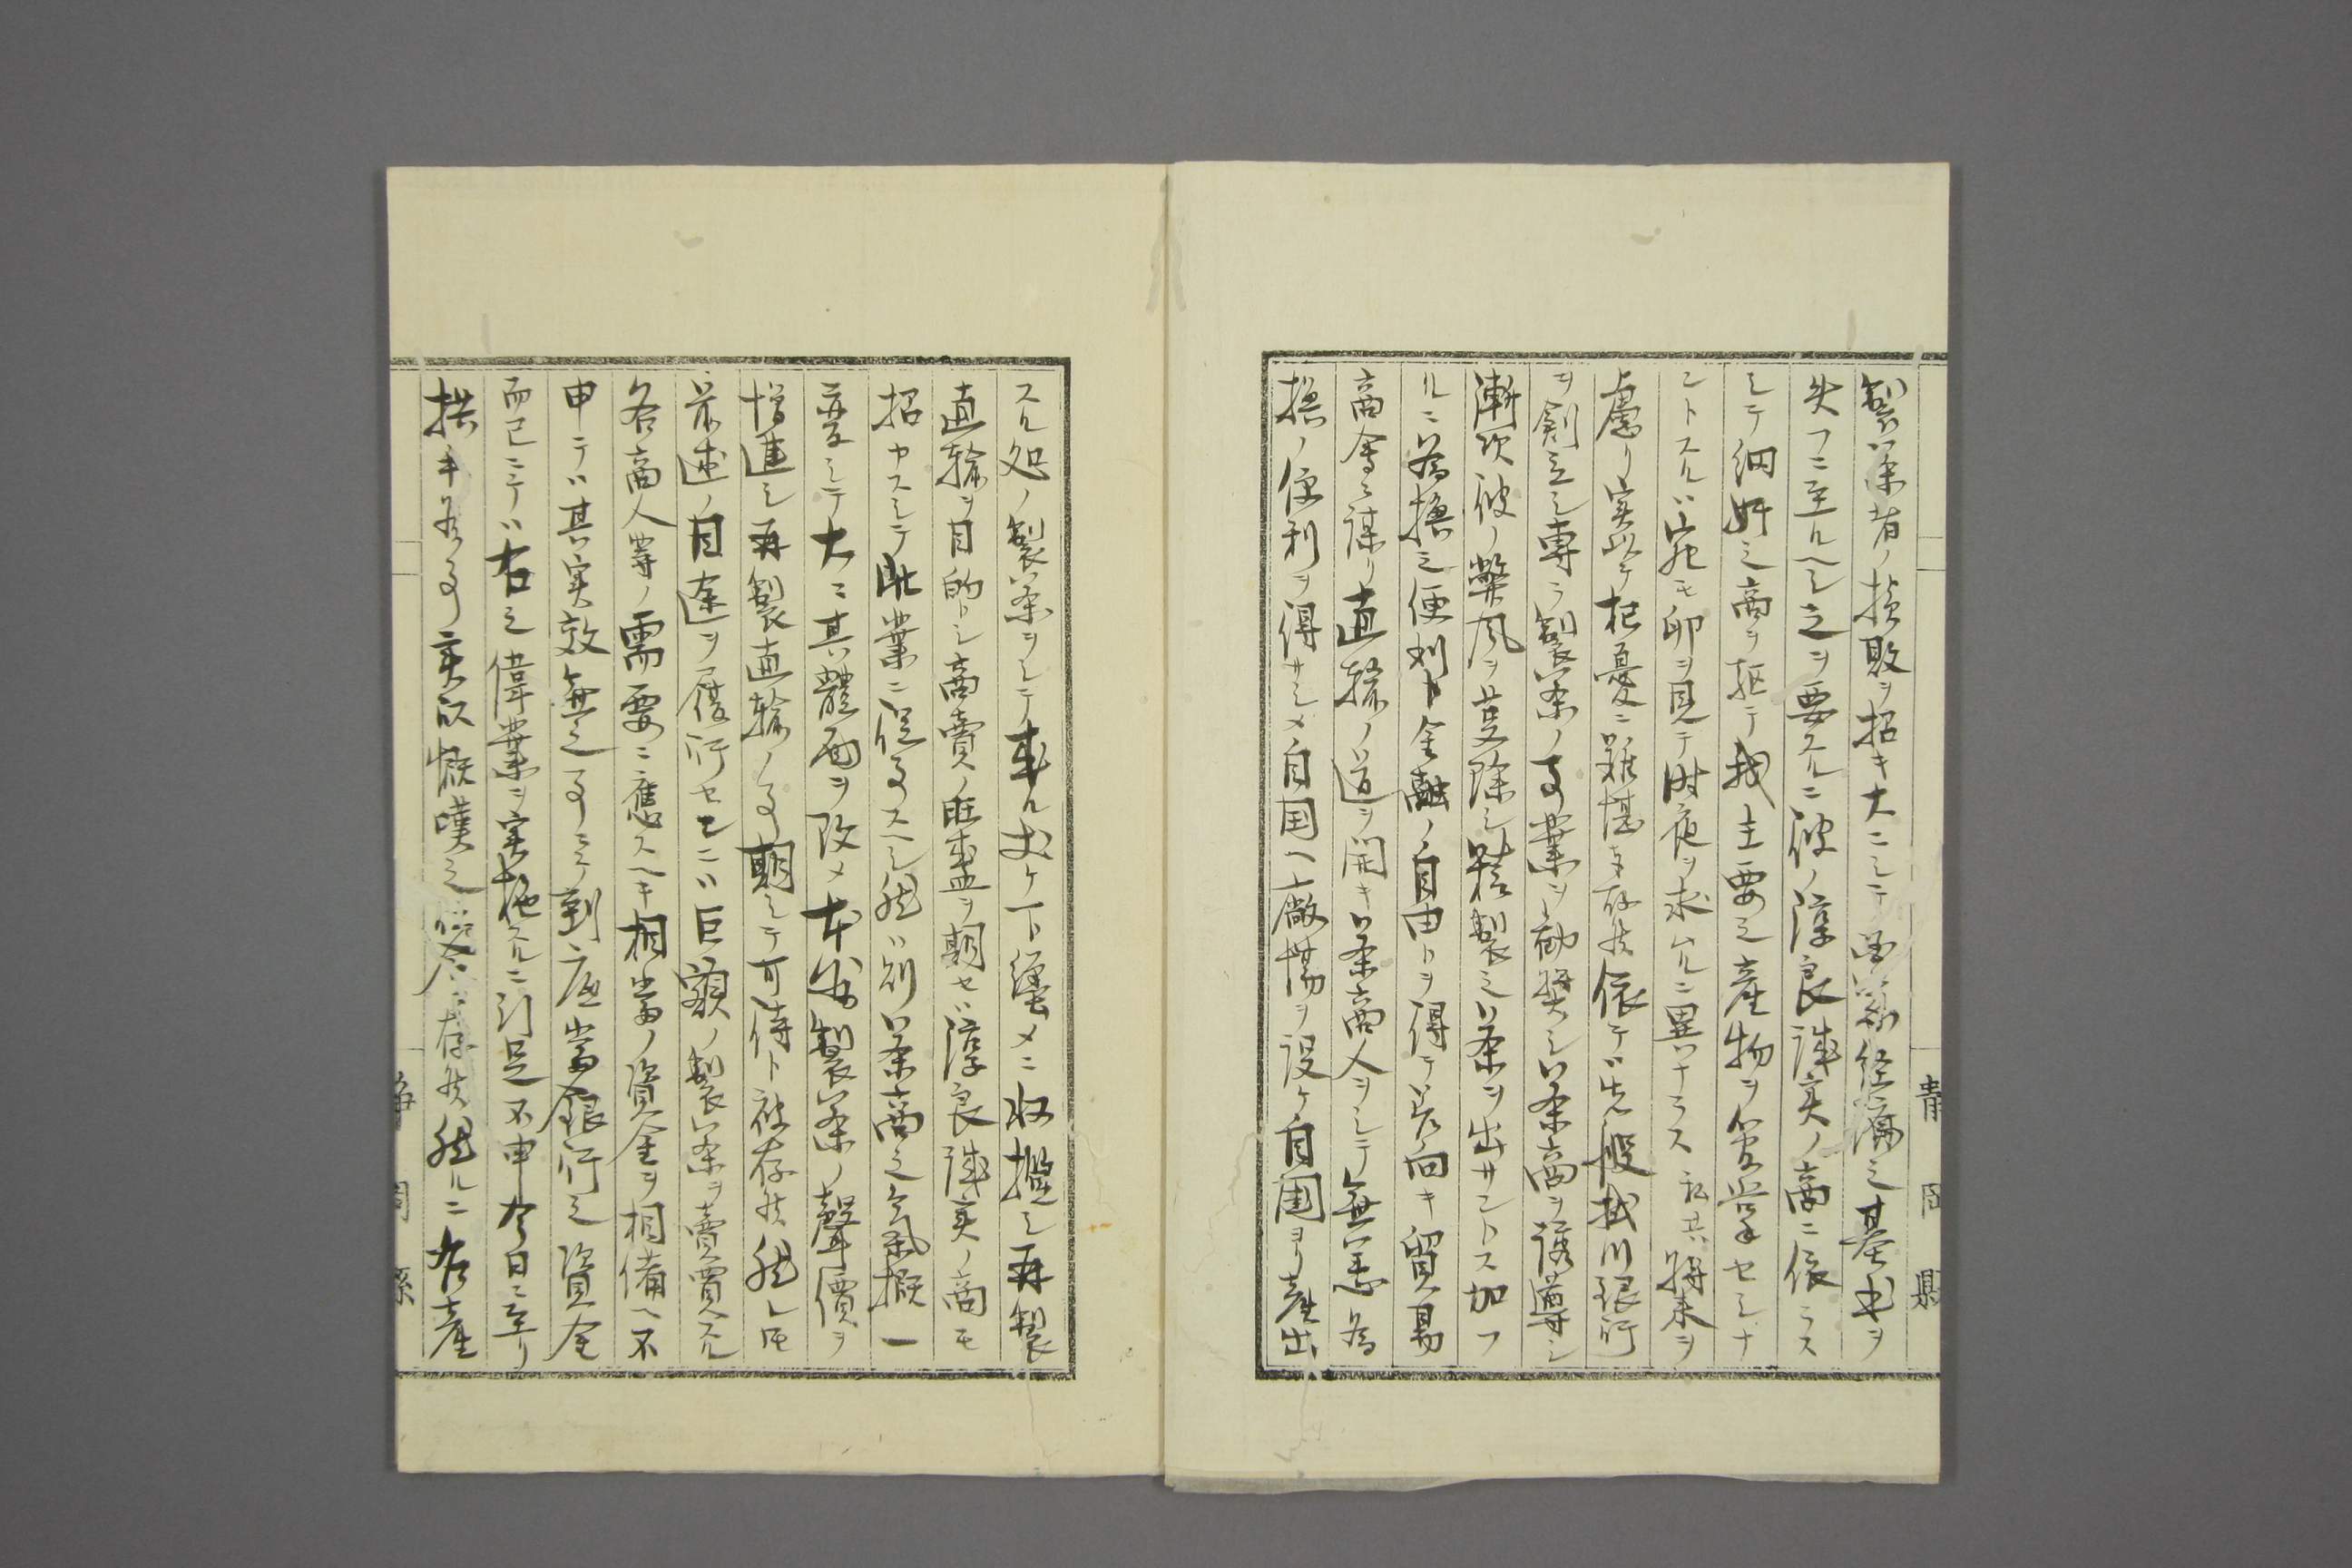 製茶者ノ損敗ヲ招キ大ニシテ国家経済之基本ヲ
失フニ至ルヘシ之ヲ要スルニ彼ノ淳良誠実ノ商ニ依ラス
シテ網奸之商ヲ駆テ我主要之産物ヲ管掌セシナ
ントスルハ宛モ卵ヲ見テ時夜ヲ求ムルニ異ナラス私共将来ヲ
慮リ実以テ杞憂ニ難堪奉存候依テ先般掛川銀行
ヲ創立シ専ラ製茶ノ事業ヲ勧奨シ茶商ヲ誘導シ
漸次彼ノ弊風ヲ芟除シ精製之茶ヲ出サントス加フ
ルニ為換之便利ト金融ノ自由トヲ得テ等向キ貿易
商会ト謀リ直輸ノ道ヲ開キ茶商人ヲシテ無恙為
換ノ便利ヲ得サシメ自国ヘ廠場ヲ設ケ自国ヨリ産出
静岡県
スル処ノ製茶ヲシテ率ル丈ケ一ト纏メニ収攬シ再製
直輸ヲ目的トシ商売ノ旺盛ヲ期セハ淳良誠実ノ商モ
招カスシテ此業ニ従事スヘシ然ハ則茶商之気概一
変シテ大ニ其体面ヲ改メ本邦製茶ノ声価ヲ
増進シ再製直輸ノ事期シテ可待ト被存候然レ𪜈
前述ノ目途ヲ履行セモニハ巨額ノ製茶ヲ売買スル
各商人等ノ需要ニ応スヘキ相当ノ資金ヲ相備ヘ不
申テハ其実效無之事ニテ到底当銀行之資金
而已ニテハ右之偉業ヲ実施スルニ引足不申今日ニ至リ
拱手罷在実以慨嘆之 存候然ルニ右産
静岡県